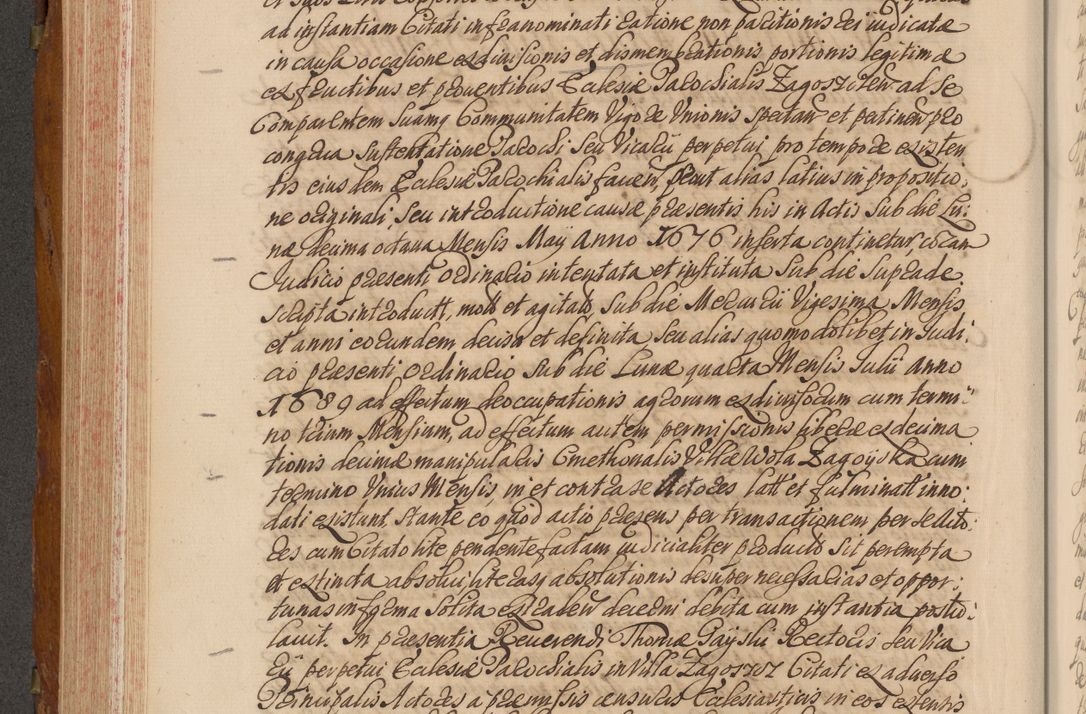 ad instantiam Citati infranominati ratione non paritionis rei iudicatæ
in causa occasione exdivisionis et dismembrationis portionis legitimæ
ex fructibus et proventibus Ecclesiæ Parochialis Zagoszczen. ad se
Comparentem suamq Communitatem Vigore Unionis spectan et pertinen pro
congrua sustentatione Parochi seu Vicarii perpetui pro tempore existen
tis eiusdem Ecclesiæ Parochialis facien, prout alias latius in propositio:
ne originali, seu introductione causæ præsentis his in Actis sub die Lu:
næ decima octava Mensis Maÿ Anno 1676 inserta continetur coram
Judicio præsenti ordinario intentata et instituta sub die suprade
scripta introductt, mott et agitatt, sub die Mercurii Vigesima Mensis
et anni eorundem decisa et definita seu alias quomodolibet in Judi:
cio præsenti ordinario sub die Lunæ quarta Mensis Julii anno
1689 ad effectum deoccupationis agrorum exdivisorum cum termi:
no trium Mensium, ad effectum autem permissionis liberæ exdecima
tionis decimæ manipularis Cmethonalis Villæ Wola Zagoÿska cum
termino Unius Mensis in et contra se Actores latt et fulminatt inno:
dati existunt. Stante eo quod actio præsens per transactionem per se Acto:
res cum Citato lite pendente factam iudicialiter producto sit perempta
et extincta absolvi literasq absolutionis desuper necessarias et oppor:
tunas in forma solita extraden decerni debita cum instantia postu:
lavit. In præsentia Reverendi Thomæ Payski Rectoris seu Vica
rii perpetui Ecclesiæ Parochialis in Villa Zagoszcz Citati ex adverso
Principalis Actores a præmissis censuris Ecclesiasticis in eos extensis